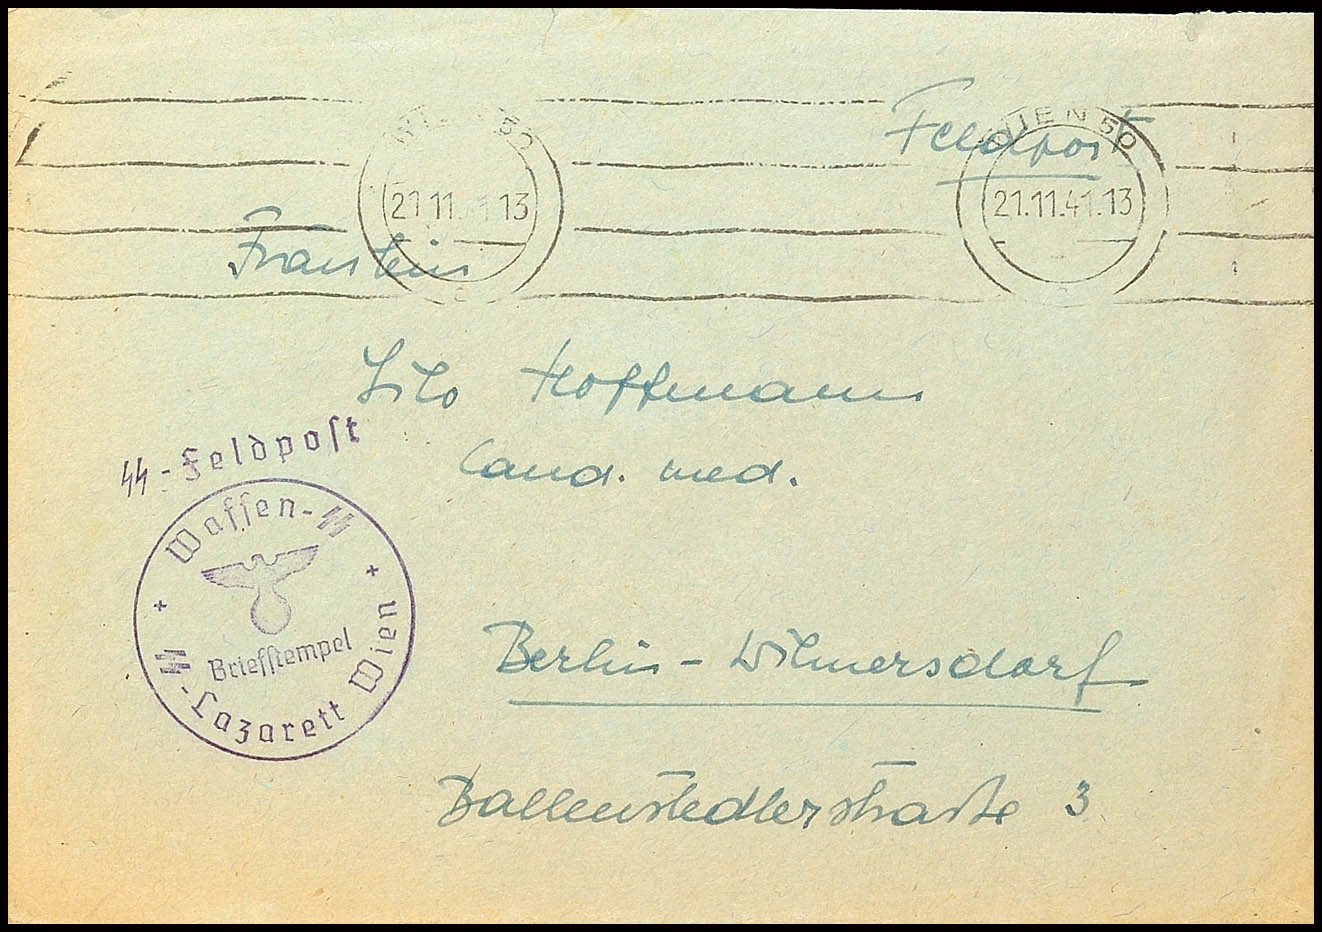 Feldpost
WIEN 50
21.11.41.13
WIEN 50
21.11.41.13
Fräulein
Lilo Hoffmann
Cand. med.
SS-Feldpost
Waffen-SS
Briefstempel
SS-Lazarett Wien
Berlin-Wilmersdorf
Ballenstedterstraße 3